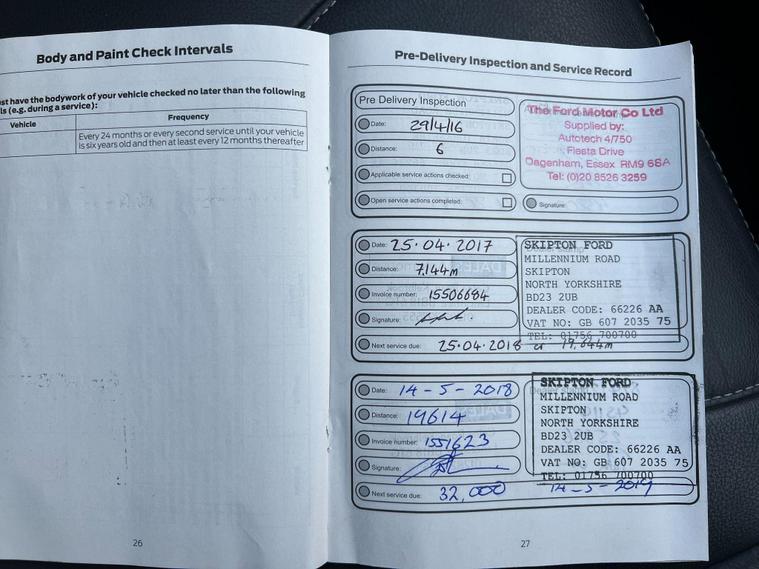 Body and Paint Check Intervals
st have the bodywork of your vehicle checked no later than the following
ls (e.g. during a service):
Vehicle Frequency
Every 24 months or every second service until your vehicle
is six years old and then at least every 12 months thereafter
26
Pre-Delivery Inspection and Service Record
Pre Delivery Inspection
Date: 29/4/16
Distance: 6
Applicable service actions checked:
Open service actions completed:
The Ford Motor Co Ltd
Supplied by:
Autotech 4/750
Fiesta Drive
Dagenham, Essex RM9 6SA
Tel: (0)20 8526 3259
Signature:
Date: 25.04.2017
Distance: 7,144m
Invoice number: 15506684
Signature:
Next service due: 25.04.2018 or 19,644m
SKIPTON FORD
MILLENNIUM ROAD
SKIPTON
NORTH YORKSHIRE
BD23 2UB
DEALER CODE: 66226 AA
VAT NO: GB 607 2035 75
TEL: 01756 700700
Date: 14-5-2018
Distance: 19614
Invoice number: 1551623
Signature:
Next service due: 32,000 14-5-2019
SKIPTON FORD
MILLENNIUM ROAD
SKIPTON
NORTH YORKSHIRE
BD23 2UB
DEALER CODE: 66226 AA
VAT NO: GB 607 2035 75
TEL: 01756 700700
27